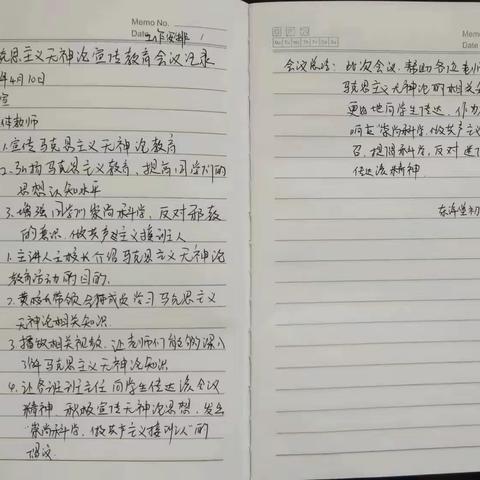 Memo No.
Date 工作安排 1
克思主义无神论宣传教育会议记录
年4月10日
室
体教师
1.宣传马克思主义无神论教育
2.弘扬马克思主义教育,提高同学们的
思想认知水平
3.增强同学们崇尚科学,反对邪教
的意识,做共产主义接班人
1.主讲人王校长介绍马克思主义无神论
教育活动的目的.
2.黄校长带领全体成员学习马克思主义
无神论相关知识.
3.播放相关视频,让老师们能够深入
了解马克思主义无神论知识
4.让各班班主任向学生传达该会议
精神,积极宣传无神论思想,发出
"崇尚科学,做共产主义接班人"的
倡议.
Mo Tu We Th Fr Sa Su
Memo No.
Date
会议总结:此次会议,帮助各位老师
马克思主义无神论的相关
更好地向学生传达,作为
响应"崇尚科学,做共产主义
召,提倡科学,反对迷
传达该精神.